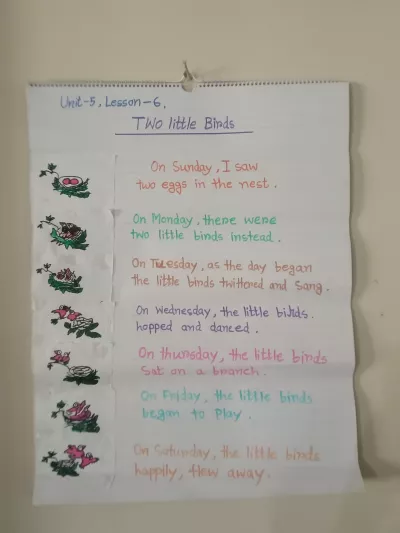 Unit-5, Lesson-6.
Two little Birds
On Sunday, I saw
two eggs in the nest.
On Monday, there were
two little birds instead.
On Tuesday, as the day began
the little birds twittered and sang.
On wednesday, the little birds.
hopped and danced.
On thursday, the little birds
Sat on a branch.
On Friday, the little birds
began to Play.
On Saturday, the little birds
happily, flew away.